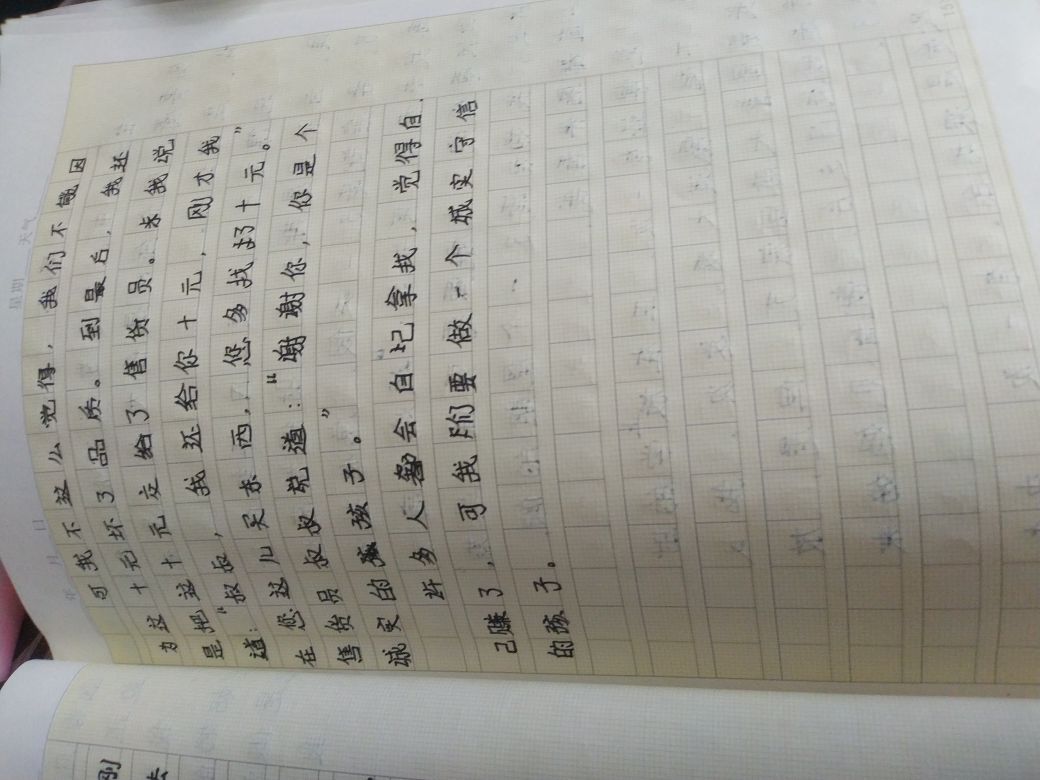 年 月 日 星期 天气
可我不这么觉得，我们不能因
为这十元坏了品质。到最后，我还
是把这十元交给了售货员。来我说
道：“叔叔，我还给你十元，刚才我
在您这儿买东西，您多找好十元。”
售货员叔叔说道：“谢谢你，你是个
诚实的孩子。”
许多人会自己拿找，觉得自
己赚了，可我们要做一个诚实守信
的孩子。
刚